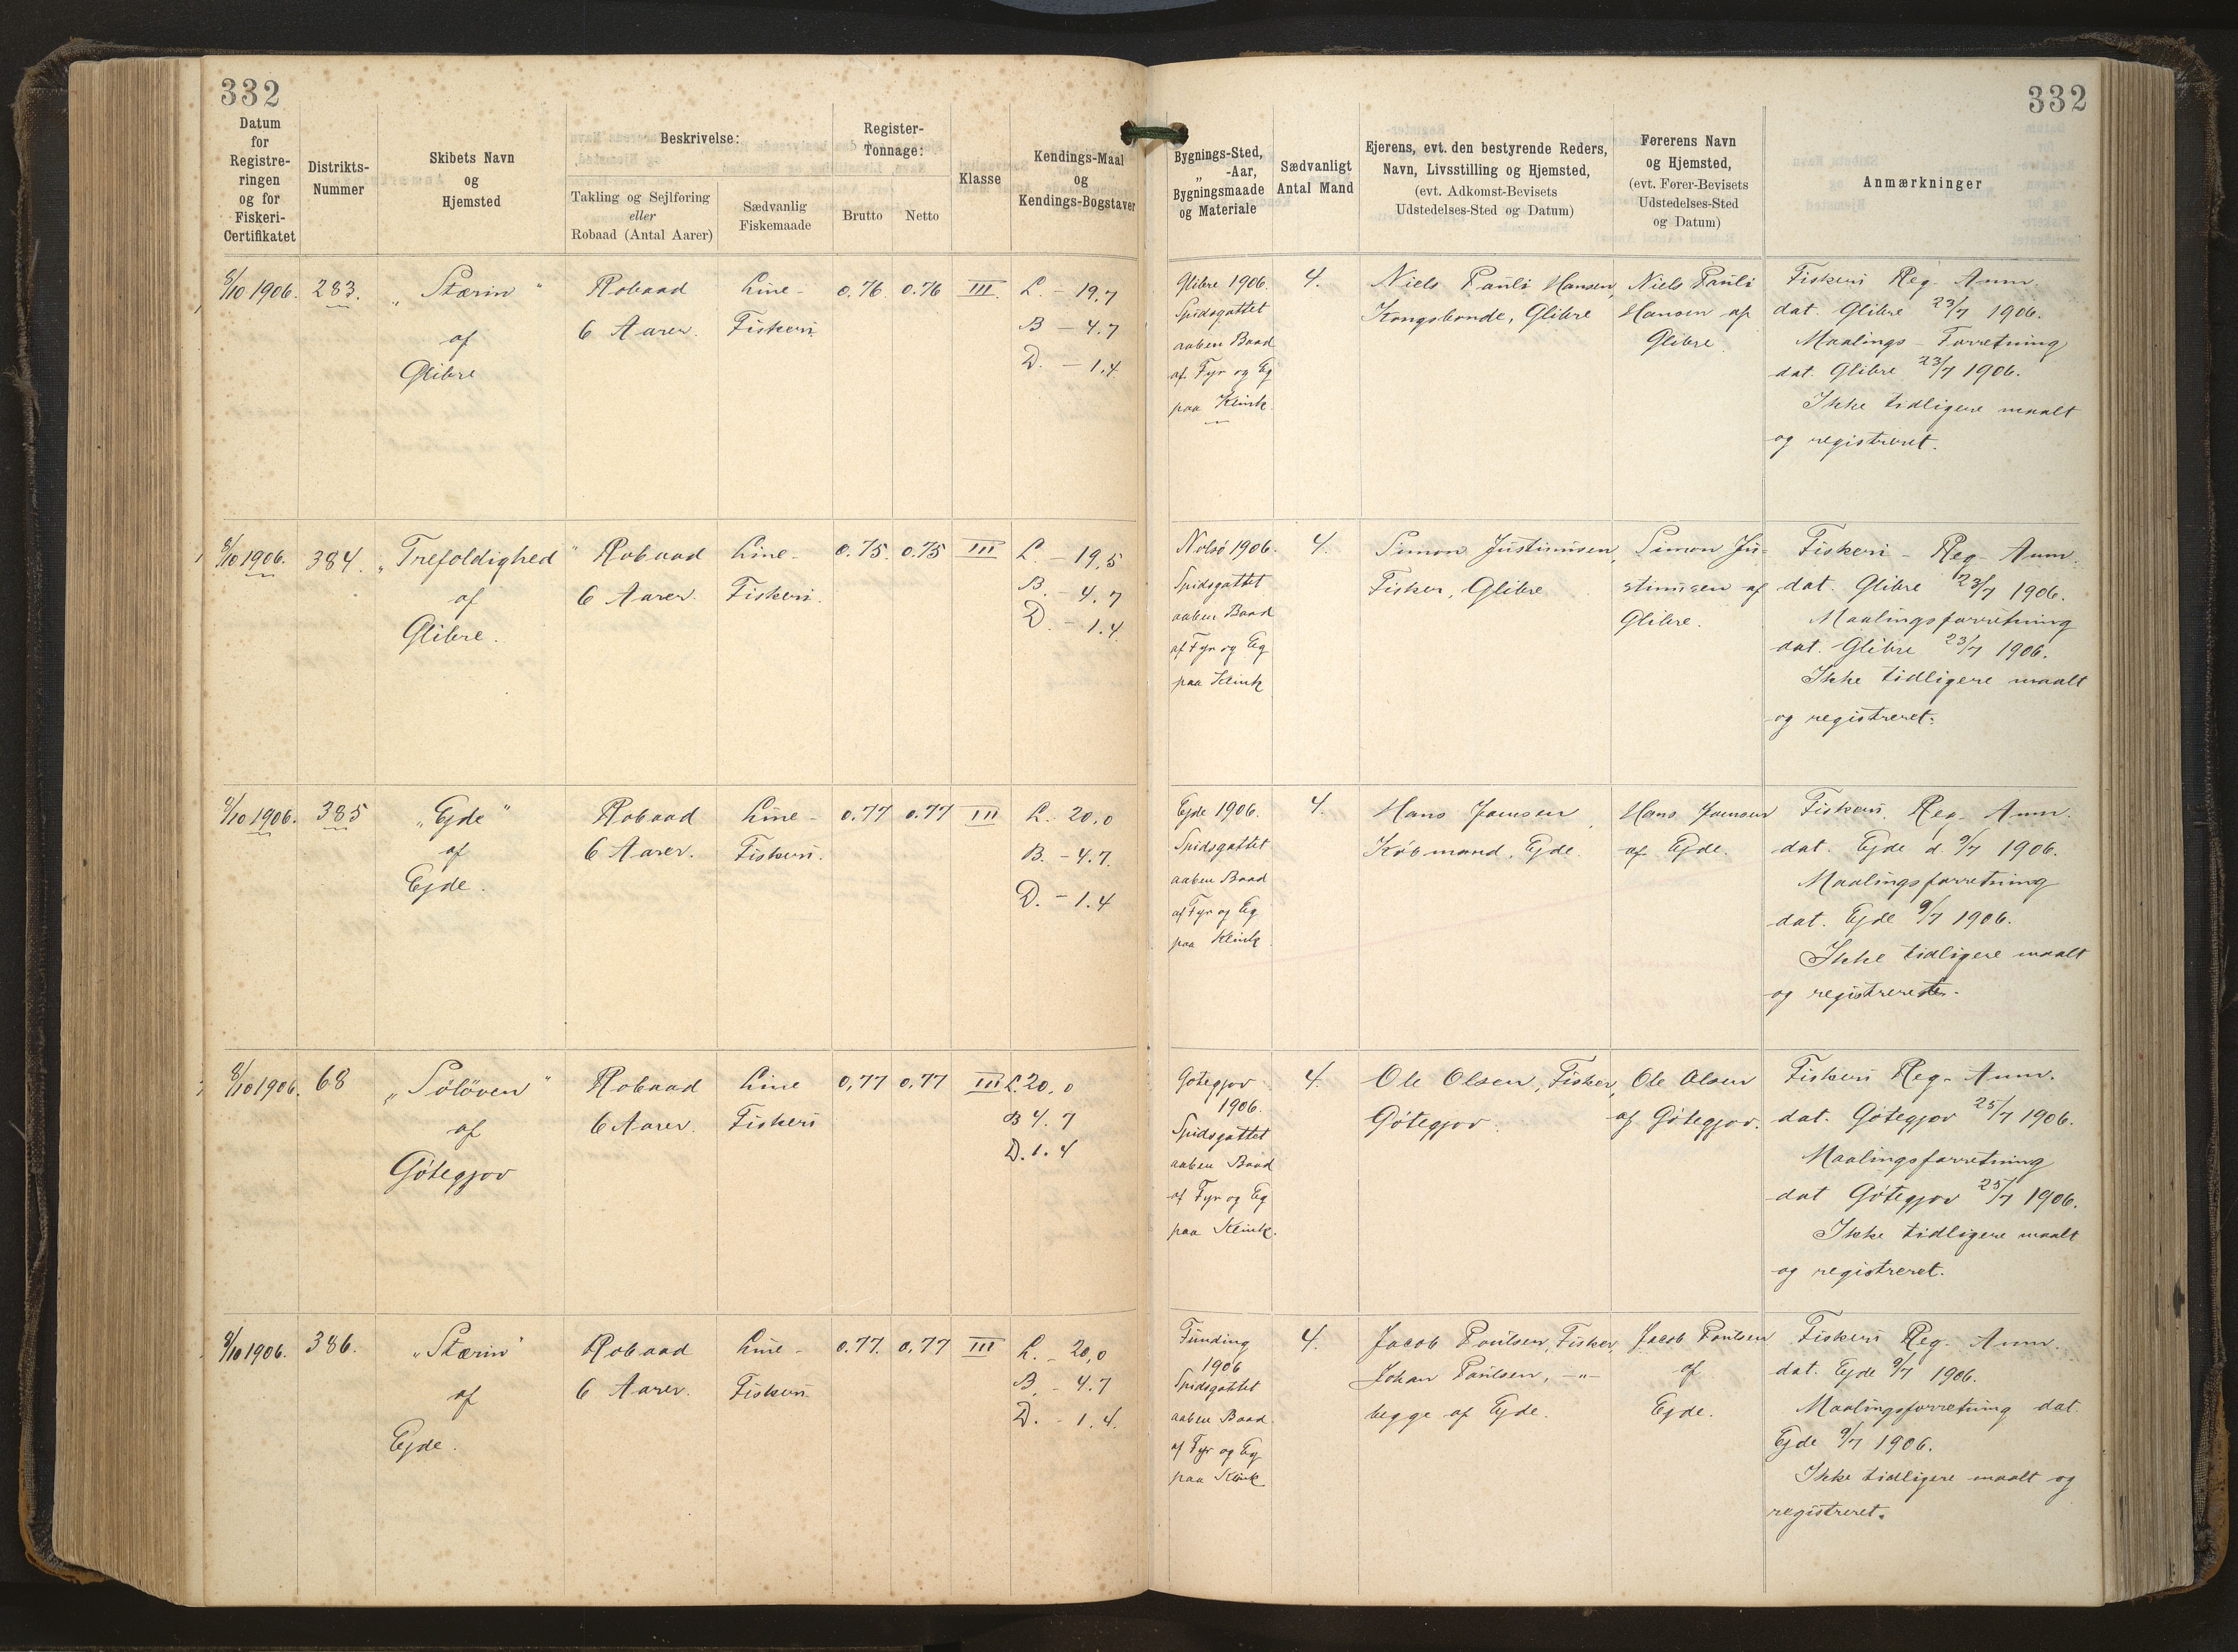 332
332
Datum
for
Registre-
ringen
og for
Fiskeri-
Certifikatet
Distrikts-
Nummer
Skibets Navn
og
Hjemsted
Beskrivelse:
Takling og Sejlføring
eller
Robaad (Antal Aarer)
Sædvanlig
Fiskemaade
Register-
Tonnage:
Brutto
Netto
Klasse
Kendings-Maal
og
Kendings-Bogstaver
Bygnings-Sted,
„ -Aar,
Bygningsmaade
og Materiale
Sædvanligt
Antal Mand
Ejerens, evt. den bestyrende Reders,
Navn, Livsstilling og Hjemsted,
(evt. Adkomst-Bevisets
Udstedelses-Sted og Datum)
Førerens Navn
og Hjemsted,
(evt. Fører-Bevisets
Udstedelses-Sted
og Datum)
Anmærkninger
8/10 1906.
283.
„Stærin“
af
Glibre
Robaad
6 Aarer.
Line-
Fiskeri.
0.76
0.76
III
L - 19,7
B - 4.7
D. - 1.4
Glibre 1906.
Spidsgattet
aaben Baad
af Fyr og Eg
paa Klink
4.
Niels Pauli Hansen,
Kongsbonde, Glibre
Niels Pauli
Hansen af
Glibre.
Fiskeri Reg. Anm.
dat. Glibre 23/7 1906.
Maalings-Forretning
dat. Glibre 23/7 1906.
Ikke tidligere maalt
og registreret.
8/10 1906.
384.
„Trefoldighed“
af
Glibre.
Robaad
6 Aarer.
Line-
Fiskeri.
0.75
0.75
III
L. - 19,5
B. - 4.7
D. - 1.4
Nolsö 1906.
Spidsgattet
aaben Baad
af Fyr og Eg
paa Klink
4.
Simon Justinusen,
Fisker, Glibre
Simon Ju-
stinusen af
Glibre.
Fiskeri-Reg. Anm.
dat. Glibre 23/7 1906.
Maalingsforretning
dat. Glibre 23/7 1906.
Ikke tidligere maalt
og registreret.
8/10 1906.
385
„Ejde“
af
Ejde.
Robaad
6 Aarer.
Line-
Fiskeri.
0.77
0.77
III
L. 20,0
B. - 4.7
D. - 1.4
Ejde 1906.
Spidsgattet
aaben Baad
af Fyr og Eg
paa Klink
4.
Hans Joensen,
Købmand, Ejde.
Hans Joensen
af Ejde.
Fiskeri. Reg. Anm.
dat. Ejde d. 9/7 1906.
Maalingsforretning
dat. Ejde 9/7 1906.
Ikke tidligere maalt
og registreret.
8/10 1906.
68
„Söløven“
af
Götegjov
Robaad
6 Aarer.
Line
Fiskeri
0,77
0,77
III
L. 20,0
B 4.7
D. 1.4
Götegjov
1906.
Spidsgattet
aaben Baad
af Fyr og Eg
paa Klink.
4.
Ole Olsen, Fisker,
Götegjov.
Ole Olsen
af Götegjov.
Fiskeri Reg. Anm.
dat. Götegjov 25/7 1906.
Maalingsforretning
dat Götegjov 25/7 1906.
Ikke tidligere maalt
og registreret.
8/10 1906.
386.
„Stærin“
af
Ejde.
Robaad
6 Aarer.
Line-
Fiskeri
0.77.
0,77
III
L. - 20,0
B. - 4.7
D. - 1.4.
Funding
1906
Spidsgattet
aaben Baad
af Fyr og Eg
paa Klink
4.
Jacob Poulsen, Fisker,
Johan Poulsen, -„-
begge af Ejde.
Jacob Poulsen
af
Ejde.
Fiskeri Reg. Anm.
dat. Ejde 9/7 1906.
Maalingsforretning dat.
Ejde 9/7 1906.
Ikke tidligere maalt og
registreret.